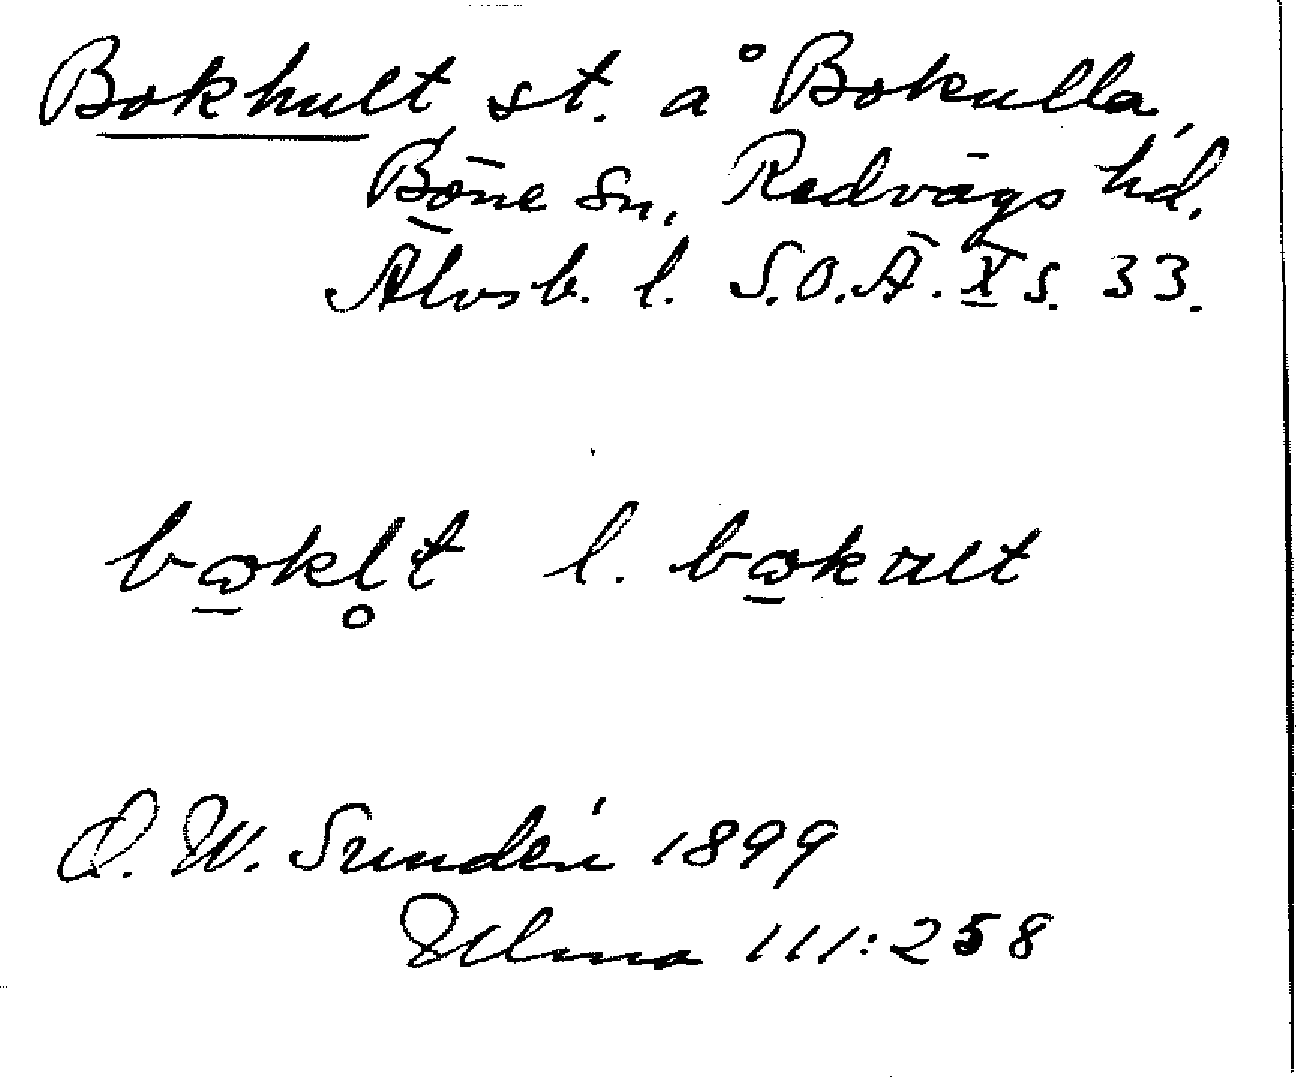 Bokhult st. å Bokulla,
Böne sn, Redvägs hd.
Älvsb. l. S.O.Ä. X s. 33.
bɷkl̥t l. bɷkult
D. W. Sundén 1899
Ulma 111:258